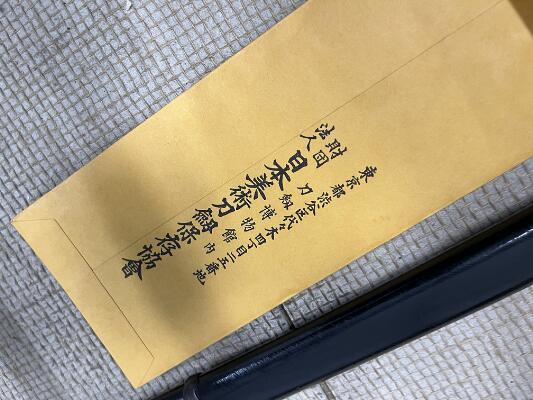 東京都渋谷区代々木四丁目二五番地
刀劔博物館内
財団法人 日本美術刀劔保存協會